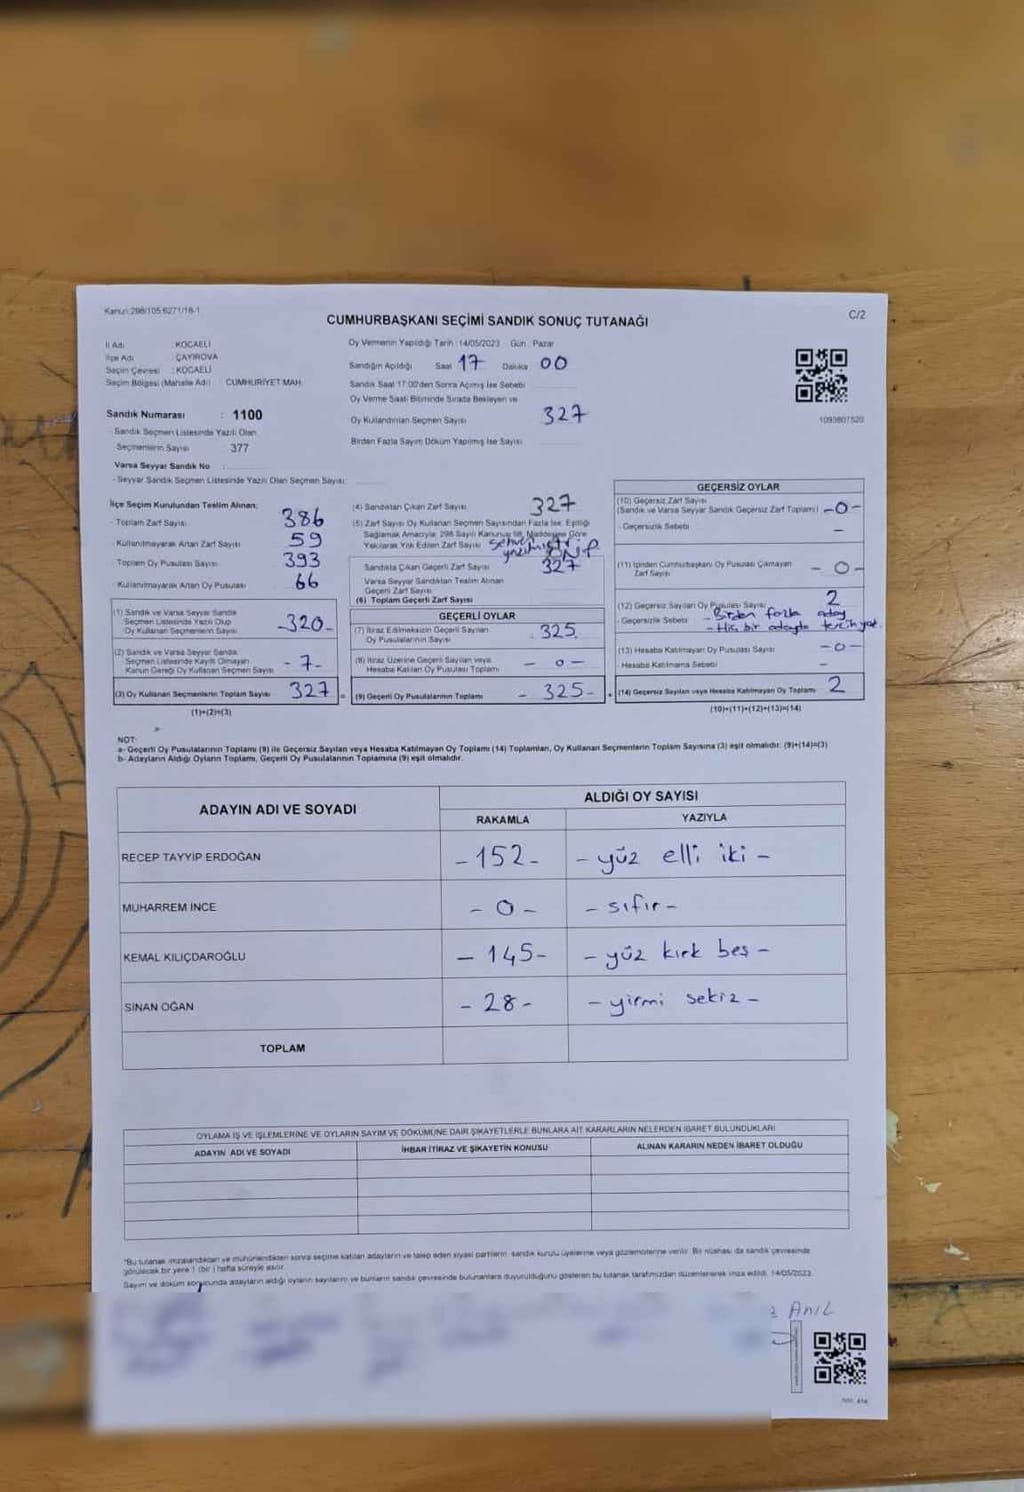 Kanun:298/105;6271/18-1
C/2
CUMHURBAŞKANI SEÇİMİ SANDIK SONUÇ TUTANAĞI
İl Adı : KOCAELİ
İlçe Adı : ÇAYIROVA
Seçim Çevresi : KOCAELİ
Seçim Bölgesi (Mahalle Adı) CUMHURİYET MAH.
Sandık Numarası : 1100
- Sandık Seçmen Listesinde Yazılı Olan
Seçmenlerin Sayısı 377
Varsa Seyyar Sandık No :
- Seyyar Sandık Seçmen Listesinde Yazılı Olan Seçmen Sayısı:
Oy Vermenin Yapıldığı Tarih : 14/05/2023 Gün : Pazar
Sandığın Açıldığı Saat 17 Dakika 00
Sandık Saat 17.00'den Sonra Açılmış İse Sebebi
Oy Verme Saati Bitiminde Sırada Bekleyen ve
Oy Kullandırılan Seçmen Sayısı 327
Birden Fazla Sayım Döküm Yapılmış İse Sayısı
1093807520
İlçe Seçim Kurulundan Teslim Alınan;
- Toplam Zarf Sayısı 386
- Kullanılmayarak Artan Zarf Sayısı 59
Toplam Oy Pusulası Sayısı 393
- Kullanılmayarak Artan Oy Pusulası 66
(1) Sandık ve Varsa Seyyar Sandık
Seçmen Listesinde Yazılı Olup
Oy Kullanan Seçmenlerin Sayısı -320-
(2) Sandık ve Varsa Seyyar Sandık
Seçmen Listesinde Kayıtlı Olmayan
Kanun Gereği Oy Kullanan Seçmen Sayısı - 7 -
(3) Oy Kullanan Seçmenlerin Toplam Sayısı 327 =
(1)+(2)=(3)
(4) Sandıktan Çıkan Zarf Sayısı 327
(5) Zarf Sayısı Oy Kullanan Seçmen Sayısından Fazla İse, Eşitliği
Sağlamak Amacıyla, 298 Sayılı Kanunun 98. Maddesine Göre
Yakılarak Yok Edilen Zarf Sayısı
Sandıkta Çıkan Geçerli Zarf Sayısı 327
Varsa Seyyar Sandıktan Teslim Alınan
Geçerli Zarf Sayısı
(6) Toplam Geçerli Zarf Sayısı
GEÇERLİ OYLAR
(7) İtiraz Edilmeksizin Geçerli Sayılan
Oy Pusulalarının Sayısı 325
(8) İtiraz Üzerine Geçerli Sayılan veya
Hesaba Katılan Oy Pusulası Toplamı - 0 -
(9) Geçerli Oy Pusulalarının Toplamı - 325 - +
GEÇERSİZ OYLAR
(10) Geçersiz Zarf Sayısı
(Sandık ve Varsa Seyyar Sandık Geçersiz Zarf Toplamı) -0-
- Geçersizlik Sebebi -
(11) İçinden Cumhurbaşkanı Oy Pusulası Çıkmayan
Zarf Sayısı - 0 -
(12) Geçersiz Sayılan Oy Pusulası Sayısı 2
- Geçersizlik Sebebi - Birden fazla aday
- Hiç bir adayda tercih yok.
(13) Hesaba Katılmayan Oy Pusulası Sayısı -0-
- Hesaba Katılmama Sebebi -
(14) Geçersiz Sayılan veya Hesaba Katılmayan Oy Toplamı 2
(10)+(11)+(12)+(13)=(14)
NOT:
a- Geçerli Oy Pusulalarının Toplamı (9) ile Geçersiz Sayılan veya Hesaba Katılmayan Oy Toplamı (14) Toplamları, Oy Kullanan Seçmenlerin Toplam Sayısına (3) eşit olmalıdır. (9)+(14)=(3)
b- Adayların Aldığı Oyların Toplamı, Geçerli Oy Pusulalarının Toplamına (9) eşit olmalıdır.
ADAYIN ADI VE SOYADI ALDIĞI OY SAYISI
RAKAMLA YAZIYLA
RECEP TAYYİP ERDOĞAN -152- - yüz elli iki -
MUHARREM İNCE - 0 - - sıfır -
KEMAL KILIÇDAROĞLU - 145- - yüz kırk beş -
SİNAN OĞAN - 28 - - yirmi sekiz -
TOPLAM
OYLAMA İŞ VE İŞLEMLERİNE VE OYLARIN SAYIM VE DÖKÜMÜNE DAİR ŞİKAYETLERLE BUNLARA AİT KARARLARIN NELERDEN İBARET BULUNDUKLARI
ADAYIN ADI VE SOYADI İHBAR İTİRAZ VE ŞİKAYETİN KONUSU ALINAN KARARIN NEDEN İBARET OLDUĞU
*Bu tutanak imzalandıktan ve mühürlendikten sonra seçime katılan adayların ve talep eden siyasi partilerin sandık kurulu üyelerine veya gözlemcilerine verilir. Bir nüshası da sandık çevresinde
görülecek bir yere 1 (bir) hafta süreyle asılır.
Sayım ve döküm sonucunda adayların aldığı oyların sayılarını ve bunların sandık çevresinde bulunanlara duyurulduğunu gösteren bu tutanak tarafımızdan düzenlenerek imza edildi. 14/05/2023
ANIL